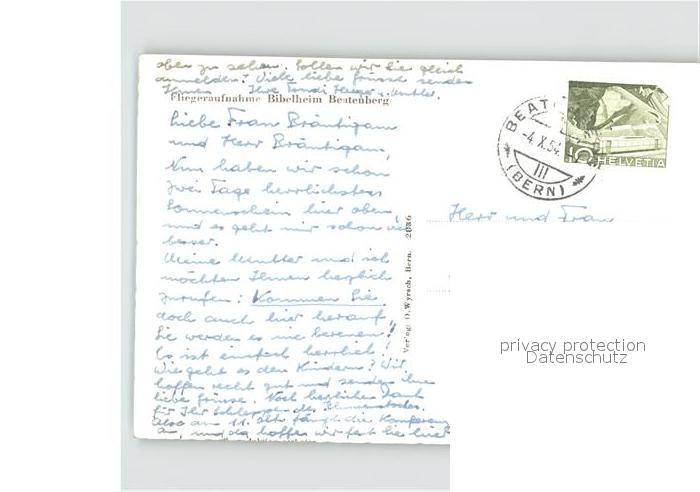 oben zu sehen. Sollen wir Sie gleich
anmelden? Viele liebe Grüsse senden
Ihnen Ihre Trudi u. Mutter.
Fliegeraufnahme Bibelheim Beatenberg
Liebe Frau Bräutigam
und Herr Bräutigam,
Nun haben wir schon
zwei Tage herrlichsten
Sonnenschein hier oben,
und es geht mir schon viel
besser.
Meine Mutter und ich
möchten Ihnen herzlich
zurufen: Kommen Sie
doch auch hier herauf,
Sie werden es nie bereuen!!
Es ist einfach herrlich!
Wie geht es den Kindern? Wir
hoffen recht gut und senden ihnen
liebe Grüsse. Noch herzlichen Dank
für Ihr Schleppen des Blumenstockes.
Also am 11. Okt. fängt die Konferenz
an, und da hoffen wir fest Sie hier
Verlag: O. Wyrsch, Bern. 2036
BEAT
-4.X.54
III
(BERN)
10 HELVETIA
Herr und Frau
privacy protection
Datenschutz